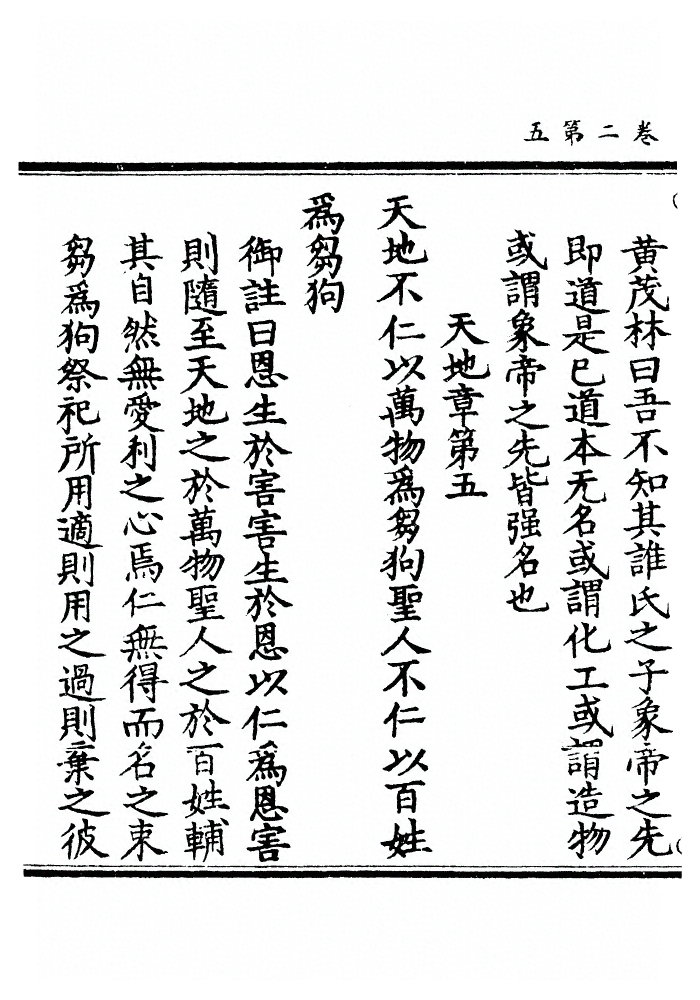 卷二第五
黃茂林曰吾不知其誰氏之子象帝之先
即道是已道本无名或謂化工或謂造物
或謂象帝之先皆强名也
天地章第五
天地不仁以萬物爲芻狗聖人不仁以百姓
爲芻狗
御註曰恩生於害害生於恩以仁爲恩害
則隨至天地之於萬物聖人之於百姓輔
其自然無愛利之心焉仁無得而名之束
芻爲狗祭祀所用適則用之過則棄之彼